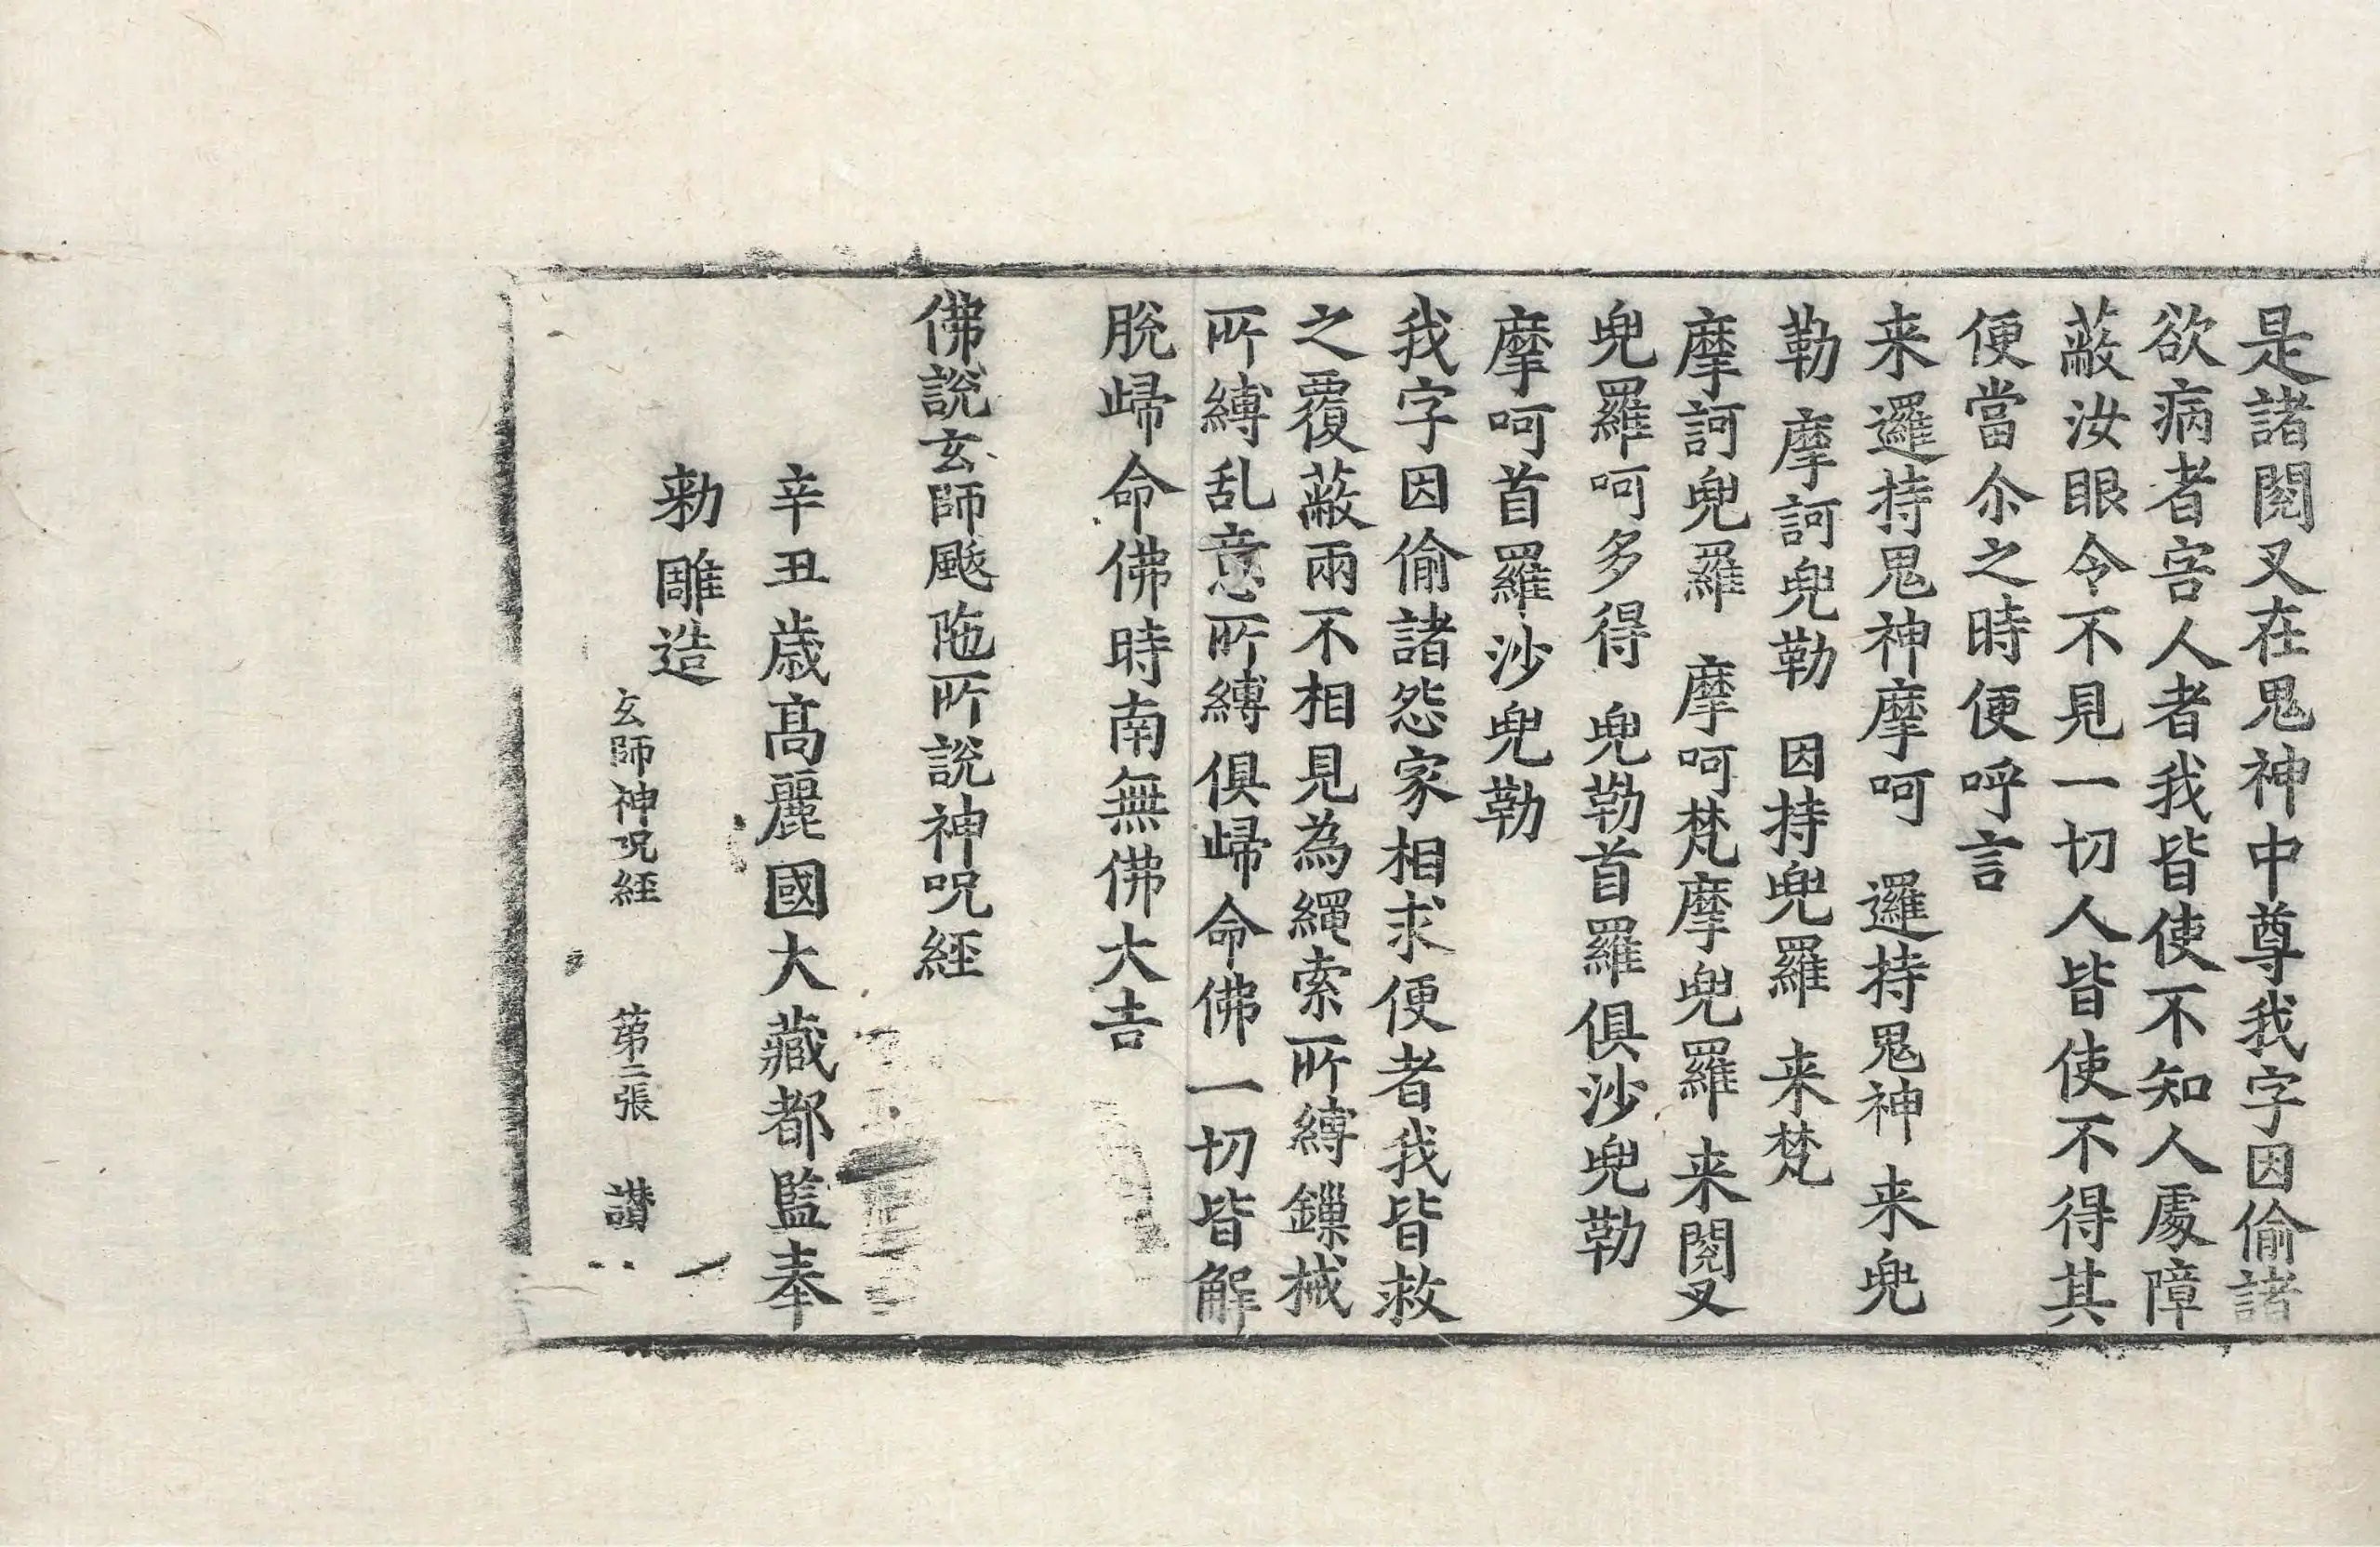 是諸閱叉在鬼神中尊我字因偷諸
欲病者害人者我皆使不知人處障
蔽汝眼令不見一切人皆使不得其
便當尒之時便呼言
来邏持鬼神摩呵　邏持鬼神　来兜
勒　摩訶兜勒　因持兜羅　来梵
摩訶兜羅　摩呵梵摩兜羅　来閱叉
兜羅呵多得　兜勒首羅俱沙兜勒
摩呵首羅沙兜勒
我字因偷諸怨家相求便者我皆救
之覆蔽兩不相見為繩索所縛鏁械
所縛乱意所縛俱歸命佛一切皆解
脫歸命佛時南無佛大吉
佛說玄師颰陁所說神呪經
辛丑歲高麗國大藏都監奉
勑雕造
玄師神呪經　第二張　讃